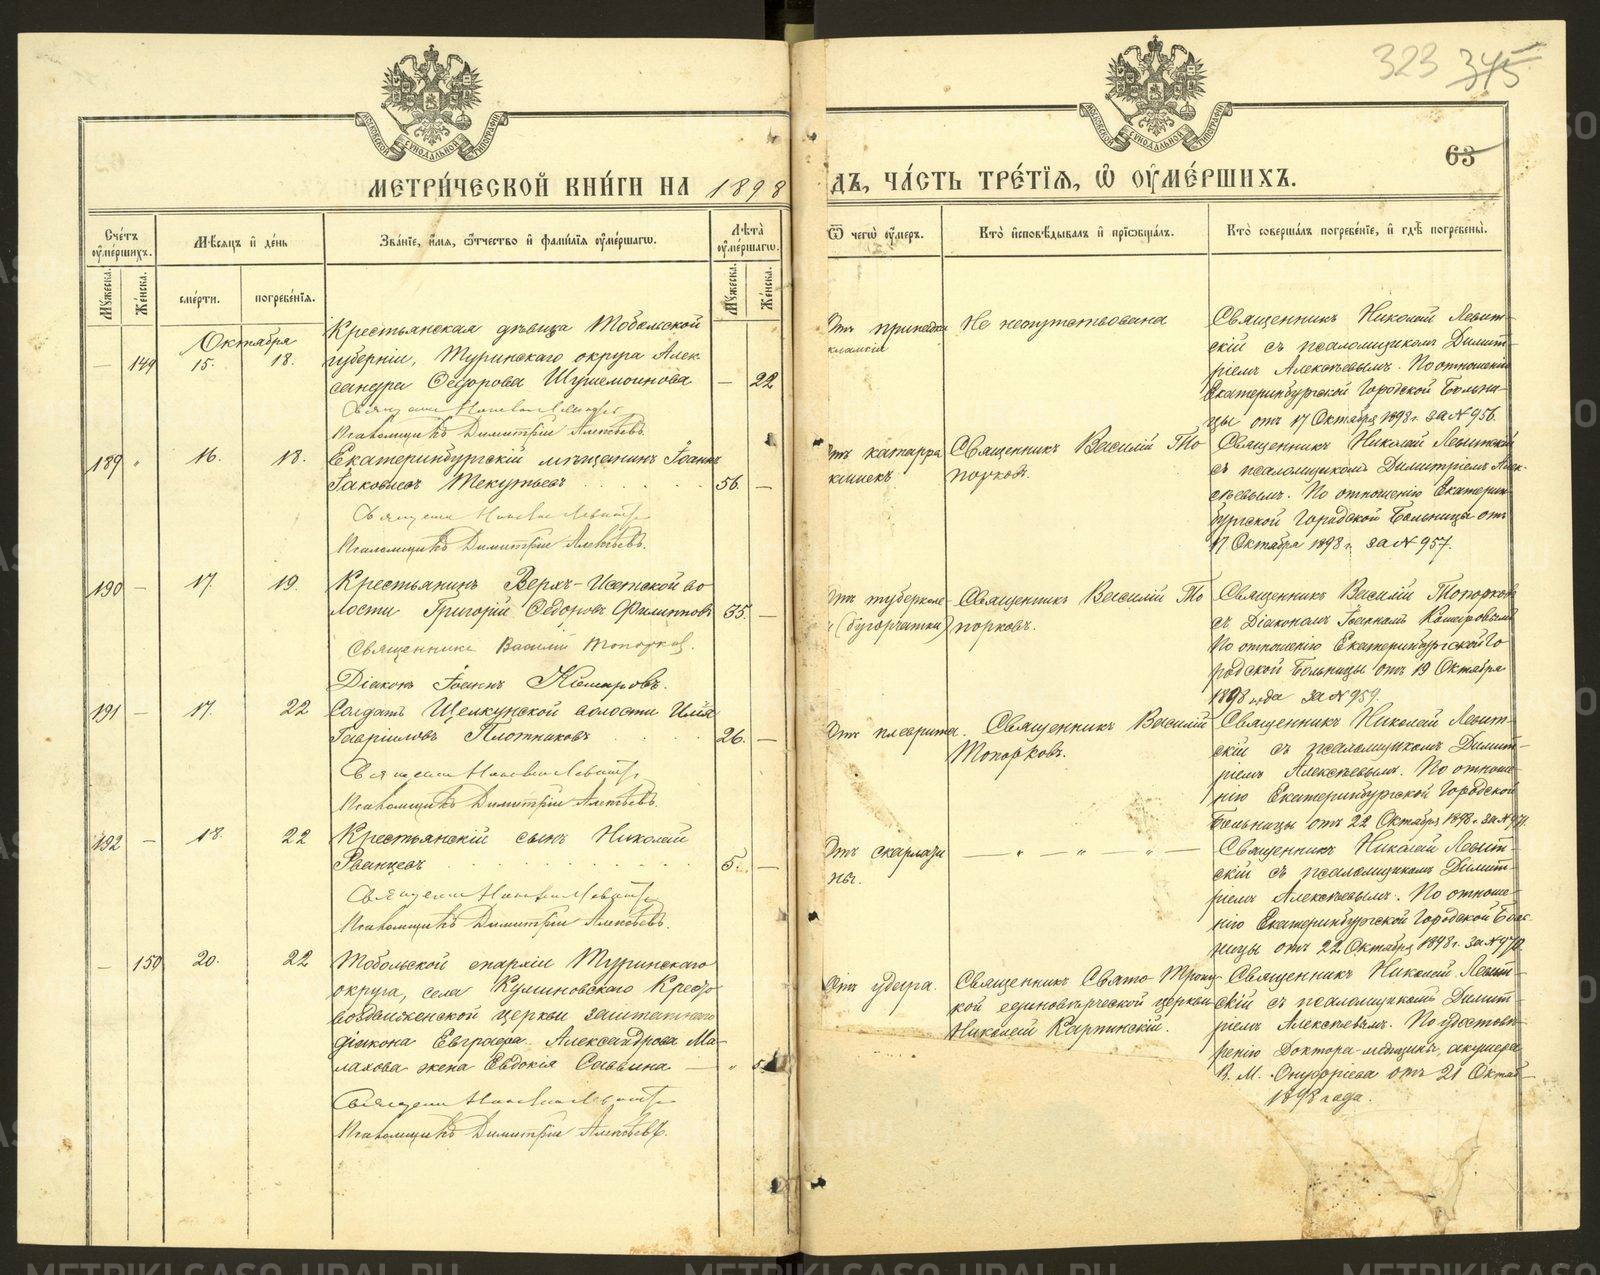 323 345
63
МОСКОВСКОЙ СѴНОДАЛЬНОЙ ТИПОГРАФІИ
МОСКОВСКОЙ СѴНОДАЛЬНОЙ ТИПОГРАФІИ
МЕТРИ́ЧЕСКОЙ КНИ́ГИ НА 1898
ДЪ, ЧА́СТЬ ТРЕ́ТІѦ, Ѡ ОУМЕ́РШИХЪ.
Сче́тъ оуме́ршихъ.
Мѣ́сѧцъ и де́нь
Зва́нїе, и́мѧ, ѻ́тчество и фами́лїѧ оуме́ршагѡ.
Лѣ́та оуме́ршагѡ.
Ѿ чегѡ̀ оу́меръ.
Кто̀ исповѣ́дывалъ и прїѡбща́лъ.
Кто̀ соверша́лъ погребе́нїе, и гдѣ̀ погребены̀.
Му́жеска. Же́нска.
сме́рти.
погребе́нїѧ.
Му́жеска. Же́нска.
Октября
— 149 15. 18.
Крестьянская дѣвица Тобольской
губерніи, Туринскаго округа Алек
сандра Ѳедорова — 22
Псаломщикъ Димитрій Алексѣевъ.
Отъ припадка
Не напутствована
Священникъ Николай Левит-
скій съ псаломщикомъ Димит-
ріемъ Алексѣевымъ. По отношенію
Екатеринбургской Городской Больни-
цы отъ 17 Октября 1898 г. за № 956.
189 " 16. 18.
Екатеринбургскій мѣщанинъ Іоаннъ
Іаковлевъ Текутьевъ 56. —
Псаломщикъ Димитрій Алексѣевъ.
отъ катарра
кишекъ.
Священникъ Василій То
порковъ.
Священникъ Николай Левитскій
съ псаломщикомъ Димитріемъ Алек-
сѣевымъ. По отношенію Екатерин-
бургской Городской Больницы отъ
17 Октября 1898 г. за № 957.
190 — 17. 19.
Крестьянинъ Верхъ-Исетской во
лости Григорій Ѳедоровъ Филипповъ 35. —
Священникъ Василій Топорковъ.
Діаконъ Іоаннъ
Отъ туберкуле
(бугорчатки)
Священникъ Василій То
порковъ.
Священникъ Василій Топорковъ
съ Діакономъ Іоанномъ
По отношенію Екатеринбургской Го
родской Больницы отъ 19 Октября
1898 года за № 959.
191 — 17. 22
Солдатъ Щелкунской волости Илія
Гавріиловъ Плотниковъ 26. —
Псаломщикъ Димитрій Алексѣевъ.
Отъ плеврита.
Священникъ Василій
Топорковъ.
Священникъ Николай Левит-
скій съ псаломщикомъ Димит-
ріемъ Алексѣевымъ. По отноше-
нію Екатеринбургской Городской
Больницы отъ 22 Октября 1898 г. за №
192 — 18. 22
Крестьянскій сынъ Николай
Рванцевъ 5. —
Псаломщикъ Димитрій Алексѣевъ.
Отъ скарлати
ны.
— " — " — " —
Священникъ Николай Левит-
скій съ псаломщикомъ Димит-
ріемъ Алексѣевымъ. По отноше-
нію Екатеринбургской Городской Боль
ницы отъ 22 Октября 1898 г. за № 970
— 150 20. 22
Тобольской епархіи Туринскаго
округа, села Куминовскаго Кресто-
воздвиженской церкви заштатнаго
діакона Евграфа Александрова Ма-
лахова жена Евдокія Саввина — "
Псаломщикъ Димитрій Алексѣевъ.
Отъ удара.
Священникъ Свято-Троиц
кой единовѣрческой церкви
Николай Карпинскій.
Священникъ Николай Левит-
скій съ псаломщикомъ Димит-
ріемъ Алексѣевымъ. По удостовѣ-
ренію Доктора медицины, акушера
В. М. Онуфріева отъ 21 Октяб-
1898 года.
METRIKI.GASO-URAL.RU